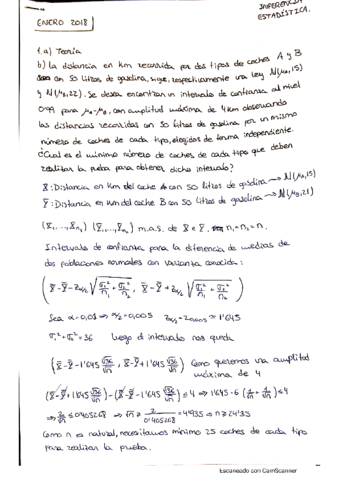 ENERO 2018
INFERENCIA ESTADÍSTICA.
1.a) Teoría
b) La distancia en Km recorrida por dos tipos de coches A y B
con 50 litros de gasolina, sigue, respectivamente una ley N(μA,15)
y N(μB,22). Se desea encontrar un intervalo de confianza al nivel
0'99 para μA-μB, con amplitud máxima de 4 Km observando
las distancias recorridas con 50 litros de gasolina por un mismo
número de coches de cada tipo, elegidos de forma independiente.
¿Cuál es el mínimo número de coches de cada tipo que deben
realizar la prueba para obtener dicho intervalo?
X: Distancia en Km del coche A con 50 litros de gasolina → N(μA,15)
Y: Distancia en Km del coche B con 50 litros de gasolina → N(μB,21)
m.a.s. de X e Y. n₁=n₂=n.
Intervalo de confianza para la diferencia de medias de
dos poblaciones normales con varianza conocida:
Sea α=0,01 → α/2=0,005 z0,005=1'645
σ₁²+σ₂²=36 luego el intervalo nos queda
(x̄-ȳ-1'645 √36/√n, x̄-ȳ+1'645 √36/√n) Como queremos una amplitud
máxima de 4
⇒ n ≥ 24'35
Como n es natural, necesitamos mínimo 25 coches de cada tipo
para realizar la prueba.
Escaneado con CamScanner